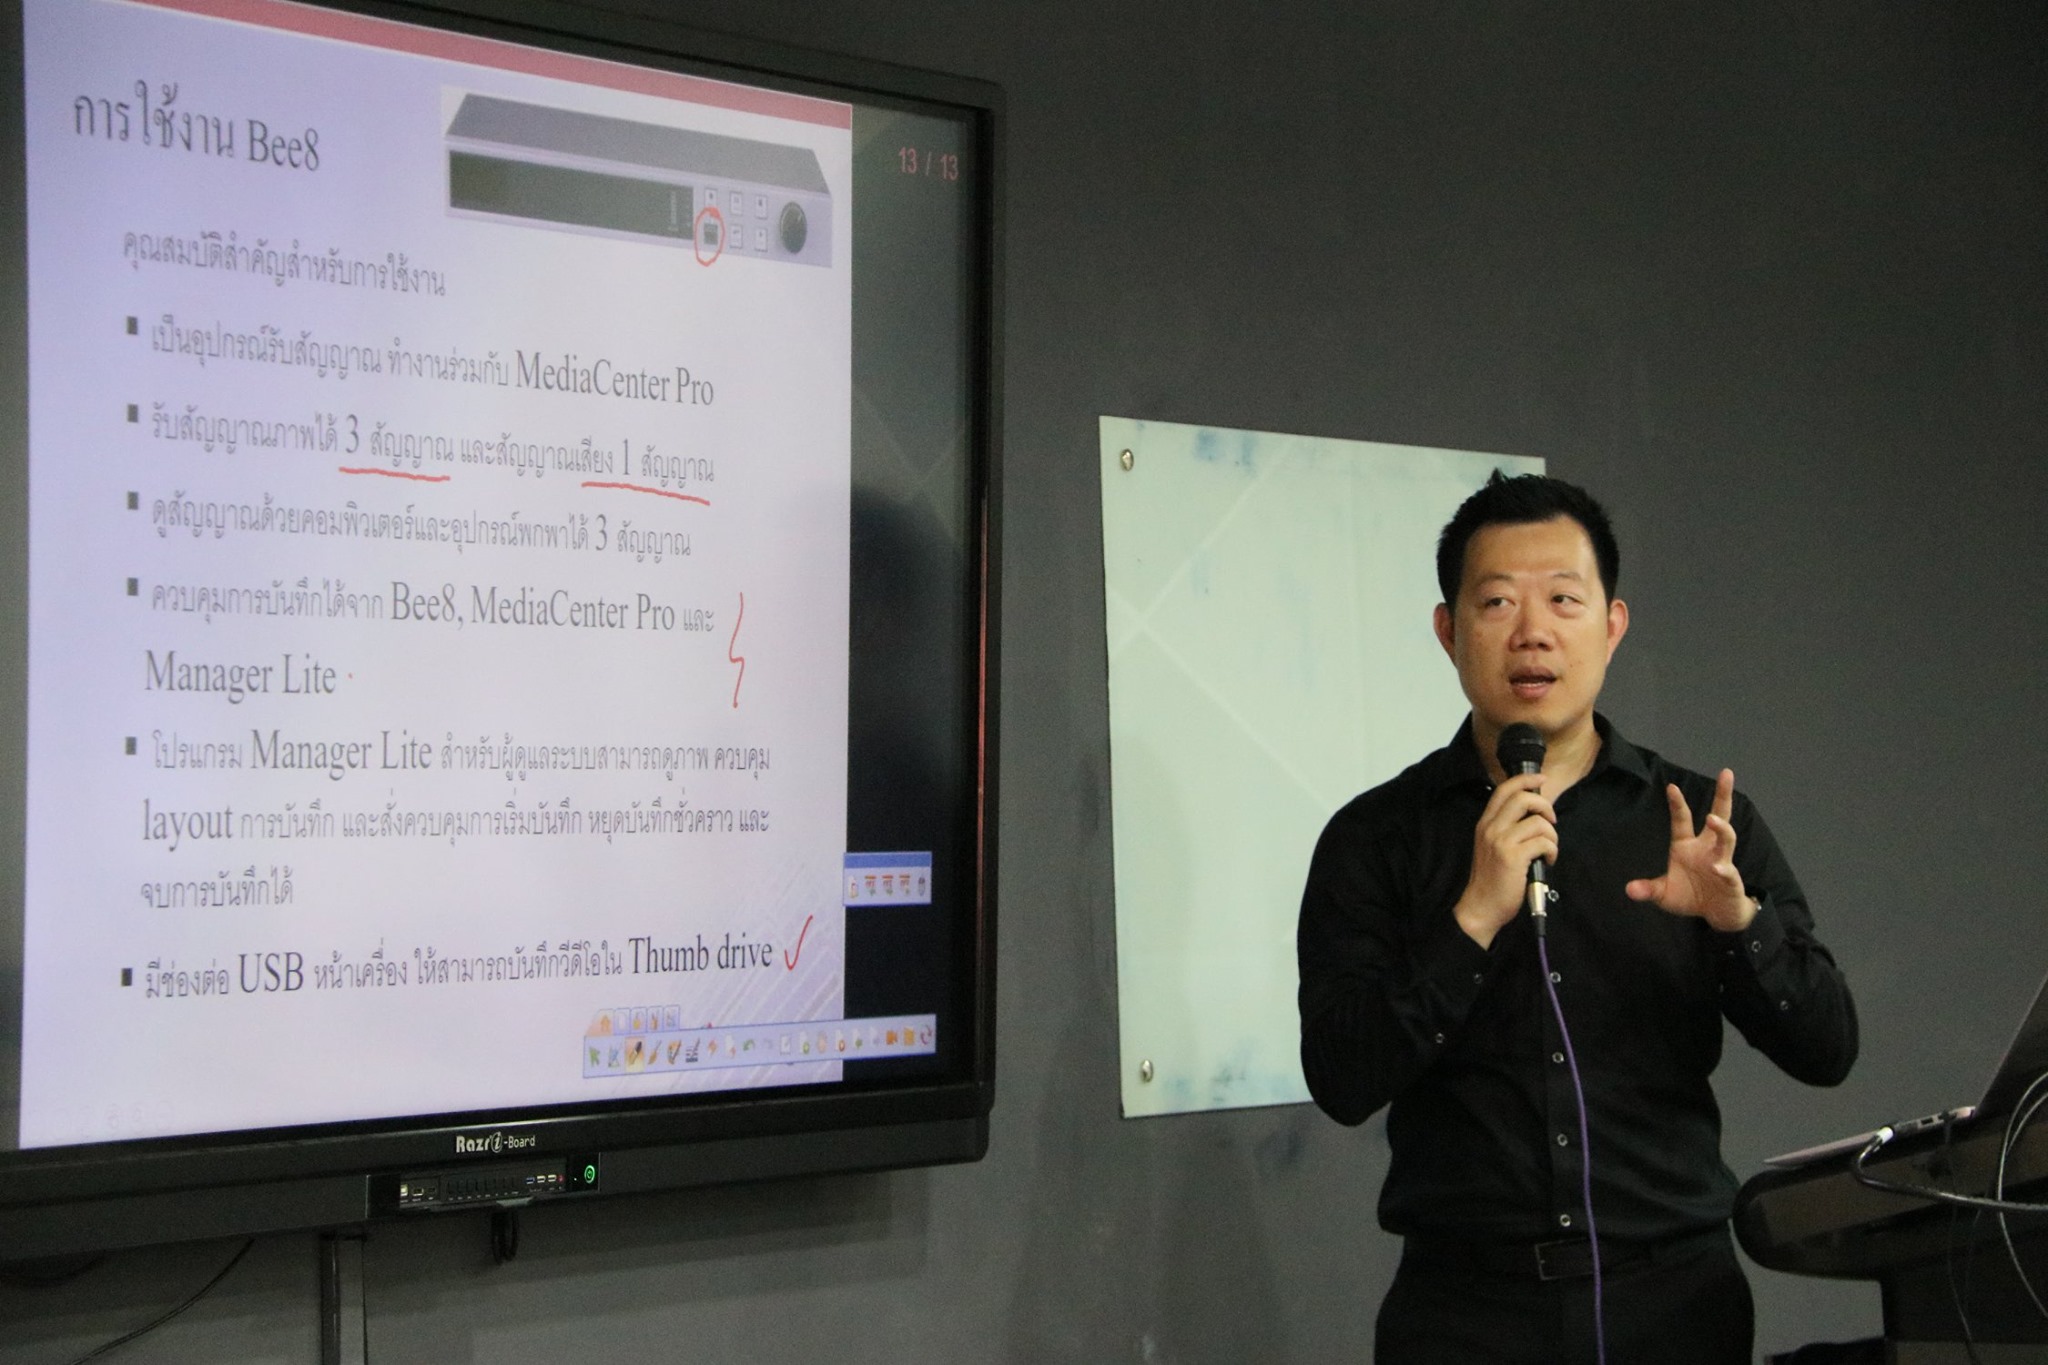 การใช้งาน Bee8
13 / 13
คุณสมบัติสำคัญสำหรับการใช้งาน
▪ เป็นอุปกรณ์รับสัญญาณ ทำงานร่วมกับ MediaCenter Pro
▪ รับสัญญาณภาพได้ 3 สัญญาณ และสัญญาณเสียง 1 สัญญาณ
▪ ดูสัญญาณด้วยคอมพิวเตอร์และอุปกรณ์พกพาได้ 3 สัญญาณ
▪ ควบคุมการบันทึกได้จาก Bee8, MediaCenter Pro และ
Manager Lite
▪ โปรแกรม Manager Lite สำหรับผู้ดูแลระบบสามารถดูภาพ ควบคุม
layout การบันทึก และสั่งควบคุมการเริ่มบันทึก หยุดบันทึกชั่วคราว และ
จบการบันทึกได้
▪ มีช่องต่อ USB หน้าเครื่อง ให้สามารถบันทึกวีดีโอใน Thumb drive
Razr i-Board